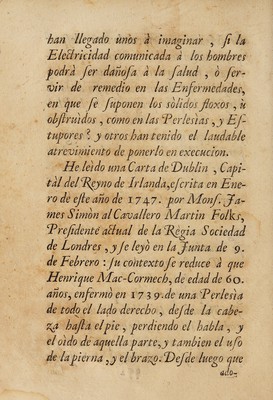 han llegado ùnos à imaginar , ſi la
Electricidad comunicada à los hombres
podrà ſer dañoſa à la ſalud , ò ſer-
vir de remedio en las Enfermedades,
en que ſe ſuponen los sòlidos floxos , ù
obſtruìdos , como en las Perleſìas , y Eſ-
tupores? y otros han tenido el laudable
atrevimiento de ponerlo en execucion.
He leìdo una Carta de Dublin , Capi-
tàl del Reyno de Irlanda,eſcrita en Ene-
ro de eſte año de 1747. por Monſ. Ja-
mes Simòn al Cavallero Martin Folks,
Preſidente actual de la Règia Sociedad
de Londres , y ſe leyò en la Junta de 9.
de Febrero : ſu contexto ſe reduce à que
Henrique Mac-Cormech, de edad de 60.
años, enfermò en 1739.de una Perleſìa
de todo el lado derecho , deſde la cabe-
za haſta el pie , perdiendo el habla , y
el oìdo de aquella parte, y tambien el uſo
de la pierna , y el brazo. Deſde luego que
ado-